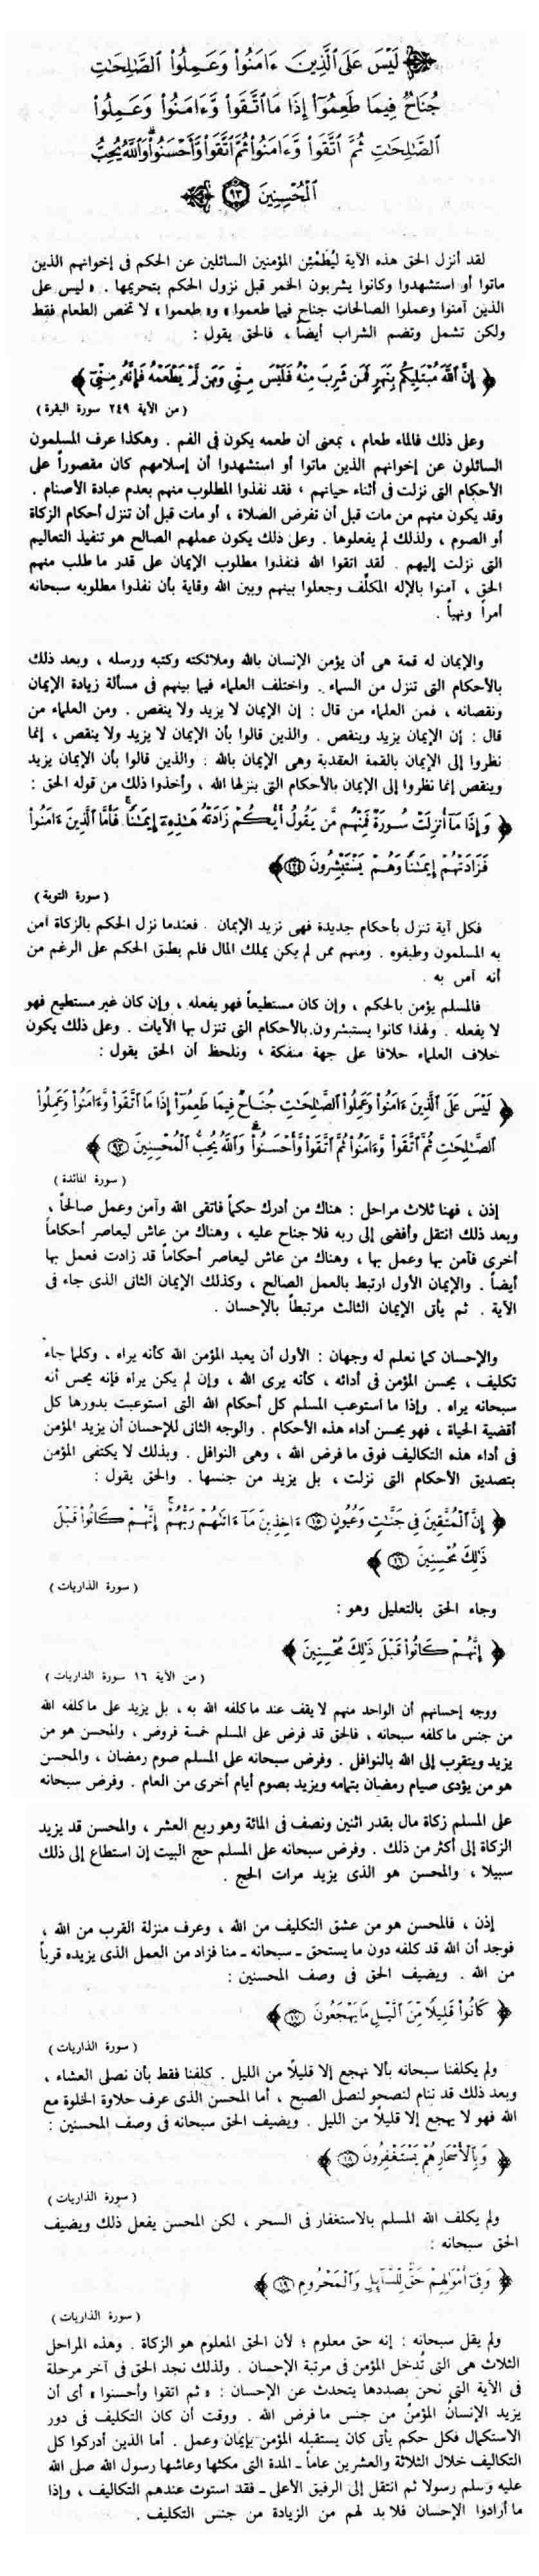 لَيْسَ عَلَى الَّذِينَ ءَامَنُوا وَعَمِلُوا الصَّالِحَاتِ
جُنَاحٌ فِيمَا طَعِمُوا إِذَا مَا اتَّقَوا وَّءَامَنُوا وَعَمِلُوا
الصَّالِحَاتِ ثُمَّ اتَّقَوا وَّءَامَنُوا ثُمَّ اتَّقَوا وَّأَحْسَنُوا وَاللَّهُ يُحِبُّ
الْمُحْسِنِينَ ٩٣
لقد أنزل الحق هذه الآية ليُطَمْئِن المؤمنين السائلين عن الحكم فى إخوانهم الذين
ماتوا أو استشهدوا وكانوا يشربون الخمر قبل نزول الحكم بتحريمها . « ليس على
الذين آمنوا وعملوا الصالحات جناح فيما طعموا » و« طعموا » لا تخص الطعام فقط
ولكن تشمل وتضم الشراب أيضاً ، فالحق يقول :
﴿ إِنَّ اللَّهَ مُبْتَلِيكُم بِنَهَرٍ فَمَن شَرِبَ مِنْهُ فَلَيْسَ مِنِّي وَمَن لَّمْ يَطْعَمْهُ فَإِنَّهُ مِنِّي ﴾
( من الآية ٢٤٩ سورة البقرة )
وعلى ذلك فالماء طعام ، بمعنى أن طعمه يكون فى الفم . وهكذا عرف المسلمون
السائلون عن إخوانهم الذين ماتوا أو استشهدوا أن إسلامهم كان مقصوراً على
الأحكام التى نزلت فى أثناء حياتهم ، فقد نفذوا المطلوب منهم بعدم عبادة الأصنام .
وقد يكون منهم من مات قبل أن تفرض الصلاة ، أو مات قبل أن تنزل أحكام الزكاة
أو الصوم ، ولذلك لم يفعلوها . وعلى ذلك يكون عملهم الصالح هو تنفيذ التعاليم
التى نزلت إليهم . لقد اتقوا الله فنفذوا مطلوب الإيمان على قدر ما طلب منهم
الحق ، آمنوا بالإله المكلِّف وجعلوا بينهم وبين الله وقاية بأن نفذوا مطلوبه سبحانه
أمراً ونهياً .
والإيمان له قمة هى أن يؤمن الإنسان بالله وملائكته وكتبه ورسله ، وبعد ذلك
بالأحكام التى تنزل من السماء . واختلف العلماء فيما بينهم فى مسألة زيادة الإيمان
ونقصانه ، فمن العلماء من قال : إن الإيمان لا يزيد ولا ينقص . ومن العلماء من
قال : إن الإيمان يزيد وينقص . والذين قالوا بأن الإيمان لا يزيد ولا ينقص ، إنما
نظروا إلى الإيمان بالقمة العقدية وهى الإيمان بالله . والذين قالوا بأن الإيمان يزيد
وينقص إنما نظروا إلى الإيمان بالأحكام التى ينزلها الله ، وأخذوا ذلك من قوله الحق :
﴿ وَإِذَا مَا أُنزِلَتْ سُورَةٌ فَمِنْهُم مَّن يَقُولُ أَيُّكُمْ زَادَتْهُ هَٰذِهِ إِيمَانًا فَأَمَّا الَّذِينَ ءَامَنُوا
فَزَادَتْهُمْ إِيمَانًا وَهُمْ يَسْتَبْشِرُونَ ١٢٤ ﴾
( سورة التوبة )
فكل آية تنزل بأحكام جديدة فهى تزيد الإيمان . فعندما نزل الحكم بالزكاة آمن
به المسلمون وطبقوه . ومنهم ممن لم يكن يملك المال فلم يطبق الحكم على الرغم من
أنه آمن به .
فالمسلم يؤمن بالحكم ، وإن كان مستطيعاً فهو يفعله ، وإن كان غير مستطيع فهو
لا يفعله . ولهذا كانوا يستبشرون بالأحكام التى تنزل بها الآيات . وعلى ذلك يكون
خلاف العلماء خلافا على جهة منفكة ، ونلحظ أن الحق يقول :
﴿ لَيْسَ عَلَى الَّذِينَ ءَامَنُوا وَعَمِلُوا الصَّالِحَاتِ جُنَاحٌ فِيمَا طَعِمُوا إِذَا مَا اتَّقَوا وَّءَامَنُوا وَعَمِلُوا
الصَّالِحَاتِ ثُمَّ اتَّقَوا وَّءَامَنُوا ثُمَّ اتَّقَوا وَّأَحْسَنُوا وَاللَّهُ يُحِبُّ الْمُحْسِنِينَ ٩٣ ﴾
( سورة المائدة )
إذن ، فهنا ثلاث مراحل : هناك من أدرك حكماً فاتقى الله وآمن وعمل صالحاً ،
وبعد ذلك انتقل وأفضى إلى ربه فلا جناح عليه ، وهناك من عاش ليعاصر أحكاماً
أخرى فآمن بها وعمل بها ، وهناك من عاش ليعاصر أحكاماً قد زادت فعمل بها
أيضاً . والإيمان الأول ارتبط بالعمل الصالح ، وكذلك الإيمان الثانى الذى جاء فى
الآية . ثم يأتى الإيمان الثالث مرتبطاً بالإحسان .
والإحسان كما نعلم له وجهان : الأول أن يعبد المؤمن الله كأنه يراه ، وكلما جاء
تكليف ، يحسن المؤمن فى أدائه ، كأنه يرى الله ، وإن لم يكن يراه فإنه يحس أنه
سبحانه يراه . وإذا ما استوعب المسلم كل أحكام الله التى استوعبت بدورها كل
أقضية الحياة ، فهو يحسن أداء هذه الأحكام . والوجه الثانى للإحسان أن يزيد المؤمن
فى أداء هذه التكاليف فوق ما فرض الله ، وهى النوافل . وبذلك لا يكتفى المؤمن
بتصديق الأحكام التى نزلت ، بل يزيد من جنسها . والحق يقول :
﴿ إِنَّ الْمُتَّقِينَ فِي جَنَّاتٍ وَعُيُونٍ ١٥ ءَاخِذِينَ مَا ءَاتَاهُمْ رَبُّهُمْ إِنَّهُمْ كَانُوا قَبْلَ
ذَٰلِكَ مُحْسِنِينَ ١٦ ﴾
( سورة الذاريات )
وجاء الحق بالتعليل وهو :
﴿ إِنَّهُمْ كَانُوا قَبْلَ ذَٰلِكَ مُحْسِنِينَ ﴾
( من الآية ١٦ سورة الذاريات )
ووجه إحسانهم أن الواحد منهم لا يقف عند ما كلفه الله به ، بل يزيد على ما كلفه الله
من جنس ما كلفه سبحانه ، فالحق قد فرض على المسلم خمسة فروض ، والمحسن هو من
يزيد ويتقرب إلى الله بالنوافل . وفرض سبحانه على المسلم صوم رمضان ، والمحسن
هو من يؤدى صيام رمضان بتمامه ويزيد بصوم أيام أخرى من العام . وفرض سبحانه
على المسلم زكاة مال بقدر اثنين ونصف فى المائة وهو ربع العشر ، والمحسن قد يزيد
الزكاة إلى أكثر من ذلك . وفرض سبحانه على المسلم حج البيت إن استطاع إلى ذلك
سبيلا ، والمحسن هو الذى يزيد مرات الحج .
إذن ، فالمحسن هو من عشق التكليف من الله ، وعرف منزلة القرب من الله ،
فوجد أن الله قد كلفه دون ما يستحق ـ سبحانه ـ منا فزاد من العمل الذى يزيده قرباً
من الله . ويضيف الحق فى وصف المحسنين :
﴿ كَانُوا قَلِيلًا مِّنَ اللَّيْلِ مَا يَهْجَعُونَ ١٧ ﴾
( سورة الذاريات )
ولم يكلفنا سبحانه بألا نهجع إلا قليلاً من الليل . كلفنا فقط بأن نصلى العشاء ،
وبعد ذلك قد ننام لنصحو لنصلى الصبح ، أما المحسن الذى عرف حلاوة الخلوة مع
الله فهو لا يهجع إلا قليلاً من الليل . ويضيف الحق سبحانه فى وصف المحسنين :
﴿ وَبِالْأَسْحَارِ هُمْ يَسْتَغْفِرُونَ ١٨ ﴾
( سورة الذاريات )
ولم يكلف الله المسلم بالاستغفار فى السحر ، لكن المحسن يفعل ذلك ويضيف
الحق سبحانه :
﴿ وَفِي أَمْوَالِهِمْ حَقٌّ لِّلسَّائِلِ وَالْمَحْرُومِ ١٩ ﴾
( سورة الذاريات )
ولم يقل سبحانه : إنه حق معلوم ؛ لأن الحق المعلوم هو الزكاة . وهذه المراحل
الثلاث هى التى تُدخل المؤمن فى مرتبة الإحسان . ولذلك نجد الحق فى آخر مرحلة
فى الآية التى نحن بصددها يتحدث عن الإحسان : « ثم اتقوا وأحسنوا » أى أن
يزيد الإنسانُ المؤمنُ من جنس ما فرض الله . ووقت أن كان التكليف فى دور
الاستكمال فكل حكم يأتى كان يستقبله المؤمن بإيمان وعمل . أما الذين أدركوا كل
التكاليف خلال الثلاثة والعشرين عاماً ـ المدة التى مكثها وعاشها رسول الله صلى الله
عليه وسلم رسولا ثم انتقل إلى الرفيق الأعلى ـ فقد استوت عندهم التكاليف ، وإذا
ما أرادوا الإحسان فلا بد لهم من الزيادة من جنس التكليف .